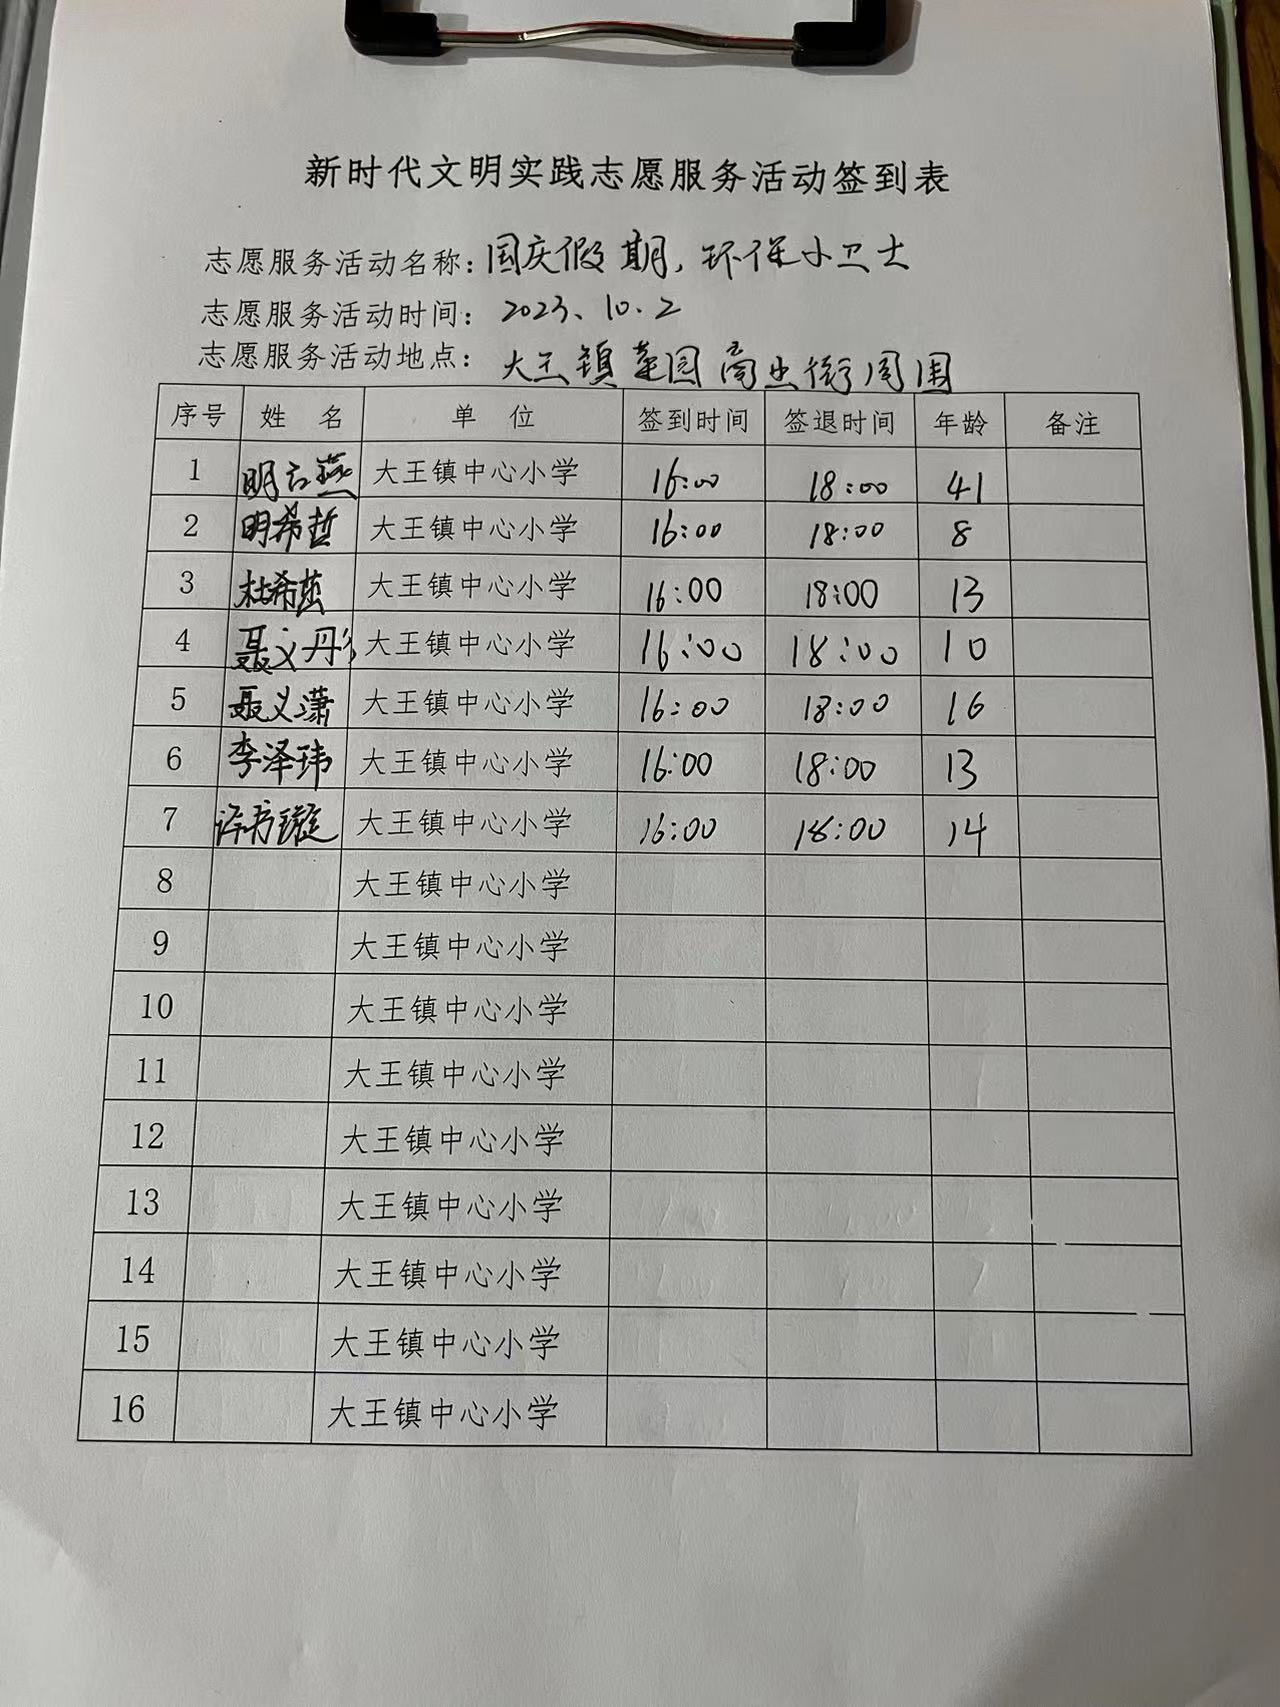 新时代文明实践志愿服务活动签到表
志愿服务活动名称：国庆假期，环保小卫士
志愿服务活动时间：2023、10.2
志愿服务活动地点：大王镇菜园商业街周围
序号 姓 名 单 位 签到时间 签退时间 年龄 备注
1 明云燕 大王镇中心小学 16:00 18:00 41
2 明希哲 大王镇中心小学 16:00 18:00 8
3 杜希 大王镇中心小学 16:00 18:00 13
4 聂义丹 大王镇中心小学 16:00 18:00 10
5 聂义潇 大王镇中心小学 16:00 18:00 16
6 李泽玮 大王镇中心小学 16:00 18:00 13
7 许方璇 大王镇中心小学 16:00 18:00 14
8 大王镇中心小学
9 大王镇中心小学
10 大王镇中心小学
11 大王镇中心小学
12 大王镇中心小学
13 大王镇中心小学
14 大王镇中心小学
15 大王镇中心小学
16 大王镇中心小学